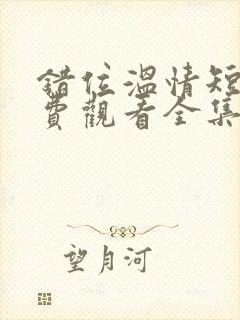 錯位溫情短
費觀看全集
望月河